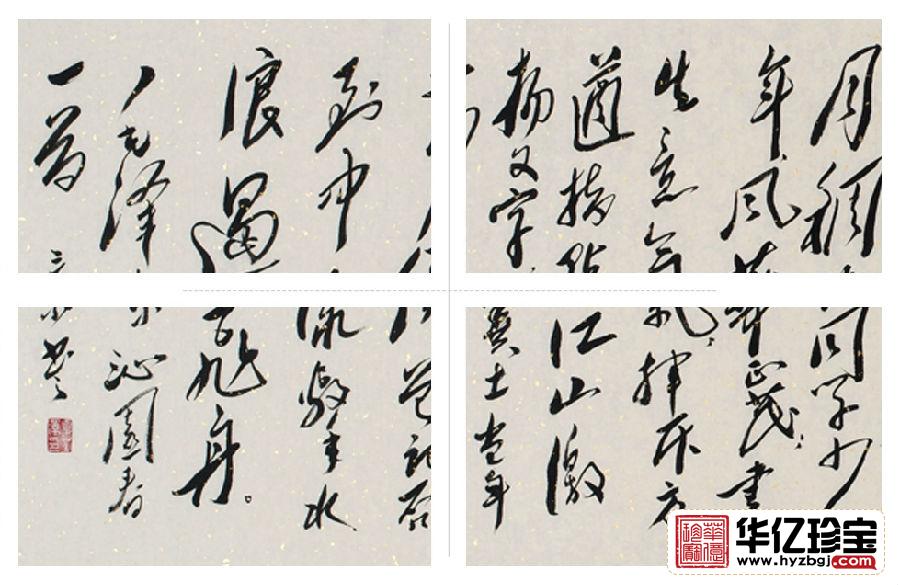 月稠
年风华
生意气
遒指点
扬文字
到中
浪遏
毛泽
一首
同学少
正茂书
挥斥方
江山激
粪土当年
曾记否
流击水
飞舟。
东沁园春
书
华亿珍宝
www.hyzbgj.com